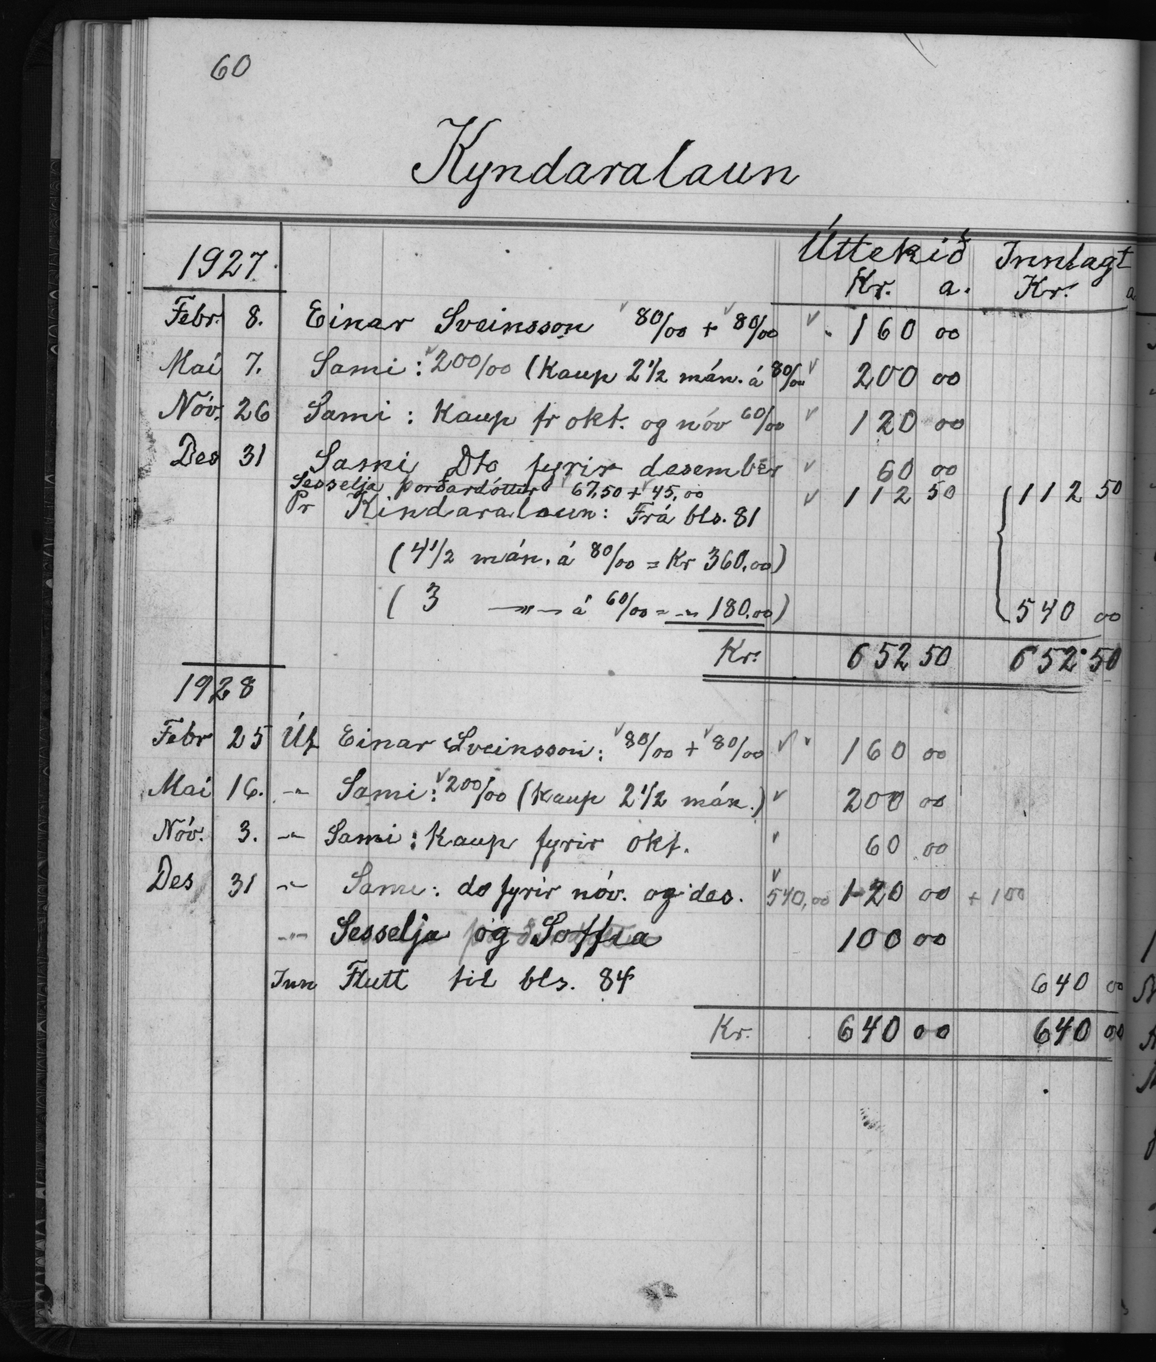 60
Kyndaralaun
1927. Úttekið Innlagt
Kr. a. Kr. a
Febr. 8. Einar Sveinsson 80/00 + 80/00 160 00
Maí 7. Sami: 200/00 (Kaup 2 1/2 mán. á 80/00 200 00
Nóv. 26 Sami: Kaup fr okt. og nóv 60/00 120 00
Des 31 Sami Dto fyrir desember 60 00
Sesselja Þorðardóttir 67,50 + 45,00 112 50 112 50
Pr Kindaralaun: Frá bls. 81
(4 1/2 mán. á 80/00 = Kr 360,00)
(3 —"— á 60/00 = -"- 180,00) 540 00
Kr: 652 50 652 50
1928
Febr 25 Út Einar Sveinsson: 80/00 + 80/00 160 00
Maí 16. -"- Sami: 200/00 (Kaup 2 1/2 mán.) 200 00
Nóv. 3. -"- Sami: Kaup fyrir okt. 60 00
Des 31 -"- Sami: do fyrir nóv. og des. 540,00 120 00 + 100
-"- Sesselja og Soffia 100 00
Inn Flutt til bls. 84 640 00
Kr. 640 00 640 00